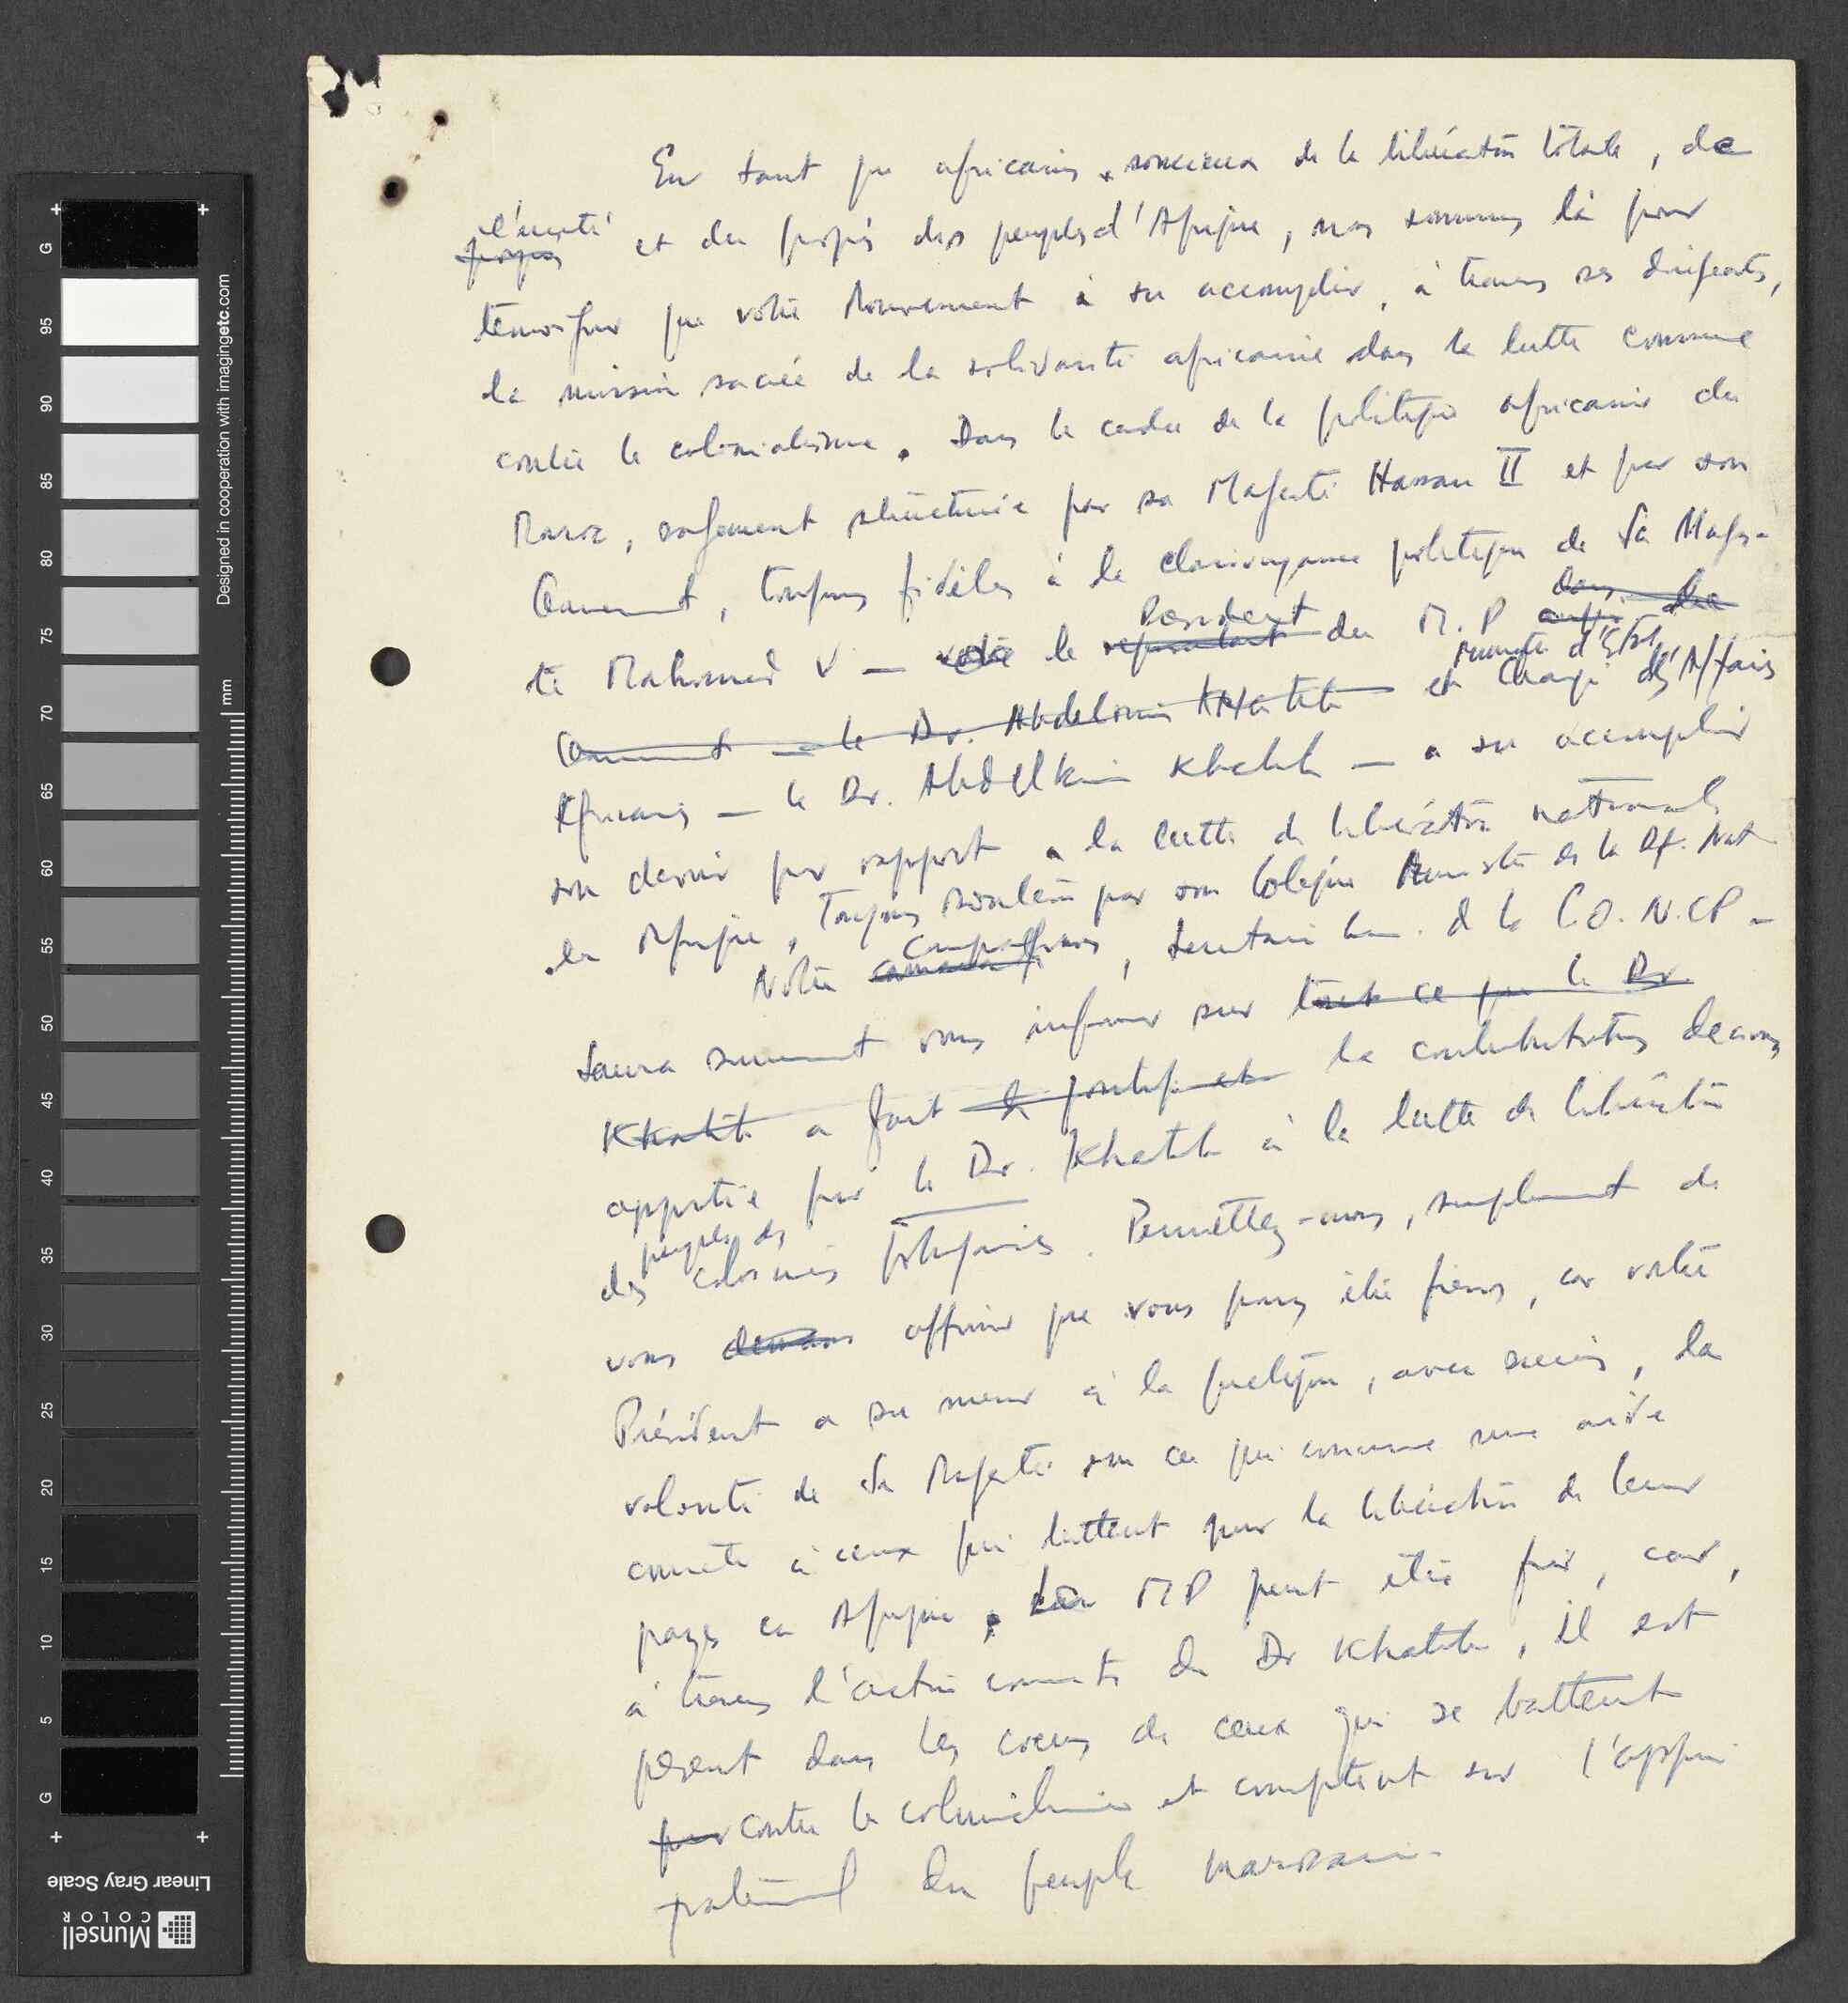 En tant que africains, soucieux de la libération totale, de
~~progrès~~ l'unité et du progrès des peuples d'Afrique, nous sommes là pour
témoigner que votre Mouvement a su accomplir, à travers ses dirigeants,
la mission sacrée de la solidarité africaine dans la lutte commune
contre le colonialisme. Dans le cadre de la politique africaine du
Maroc, sagement structurée par sa Majesté Hassan II et par son
Gouvernement, toujours fidèles à la clairvoyance politique de Sa Majes-
té Mahomed V — ~~votre~~ le ~~représentant~~ Président du M.P ~~dans le~~
~~Gouvernement — le Dr. Abdelkrim Khatib~~ — Ministre d'Etat et Chargé des Affaires
Africaines — le Dr. Abdelkrim Khatib — a su accomplir
son devoir par rapport a la lutte de libération nationale
en Afrique, toujours par son Collègue Ministre de la Df. Nat
Notre ~~camarade~~ , Secrétaire Gen. de la C.O.N.CP -
saura surement vous informer sur ~~tout ce que le Dr~~
~~Khatib~~ a fait ~~et~~ la contributution
apportée par le Dr. Khatib à la lutte de libération
des peuples des colonies portugaises. Permettez-nous, simplement de
vous affirmer que vous pouvez être fiers, car votre
Président a su mener à la pratique, avec succès, la
volonté de Sa Majesté en ce qui concerne une aide
concrète à ceux qui luttent pour la libération de leur
pays en Afrique. Le MP peut être fier, car,
à travers l'action concrète du Dr Khatib, il est
présent dans les coeurs de ceux qui se battent
~~pour~~ contre le colonialisme et comptent sur l'appui
fraternel du peuple marocain.